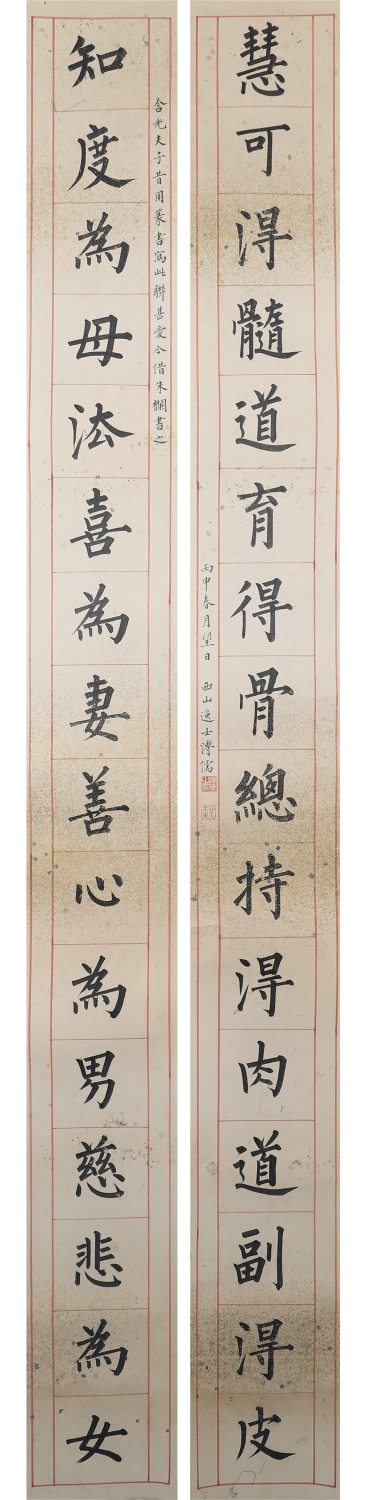 慧可淂髓道育得骨總持淂肉道副淂皮
丙申春月望日 西山逸士溥儒
含光夫子昔用篆書寫此聯甚愛今借朱欄書之
知度為母法喜為妻善心為男慈悲為女